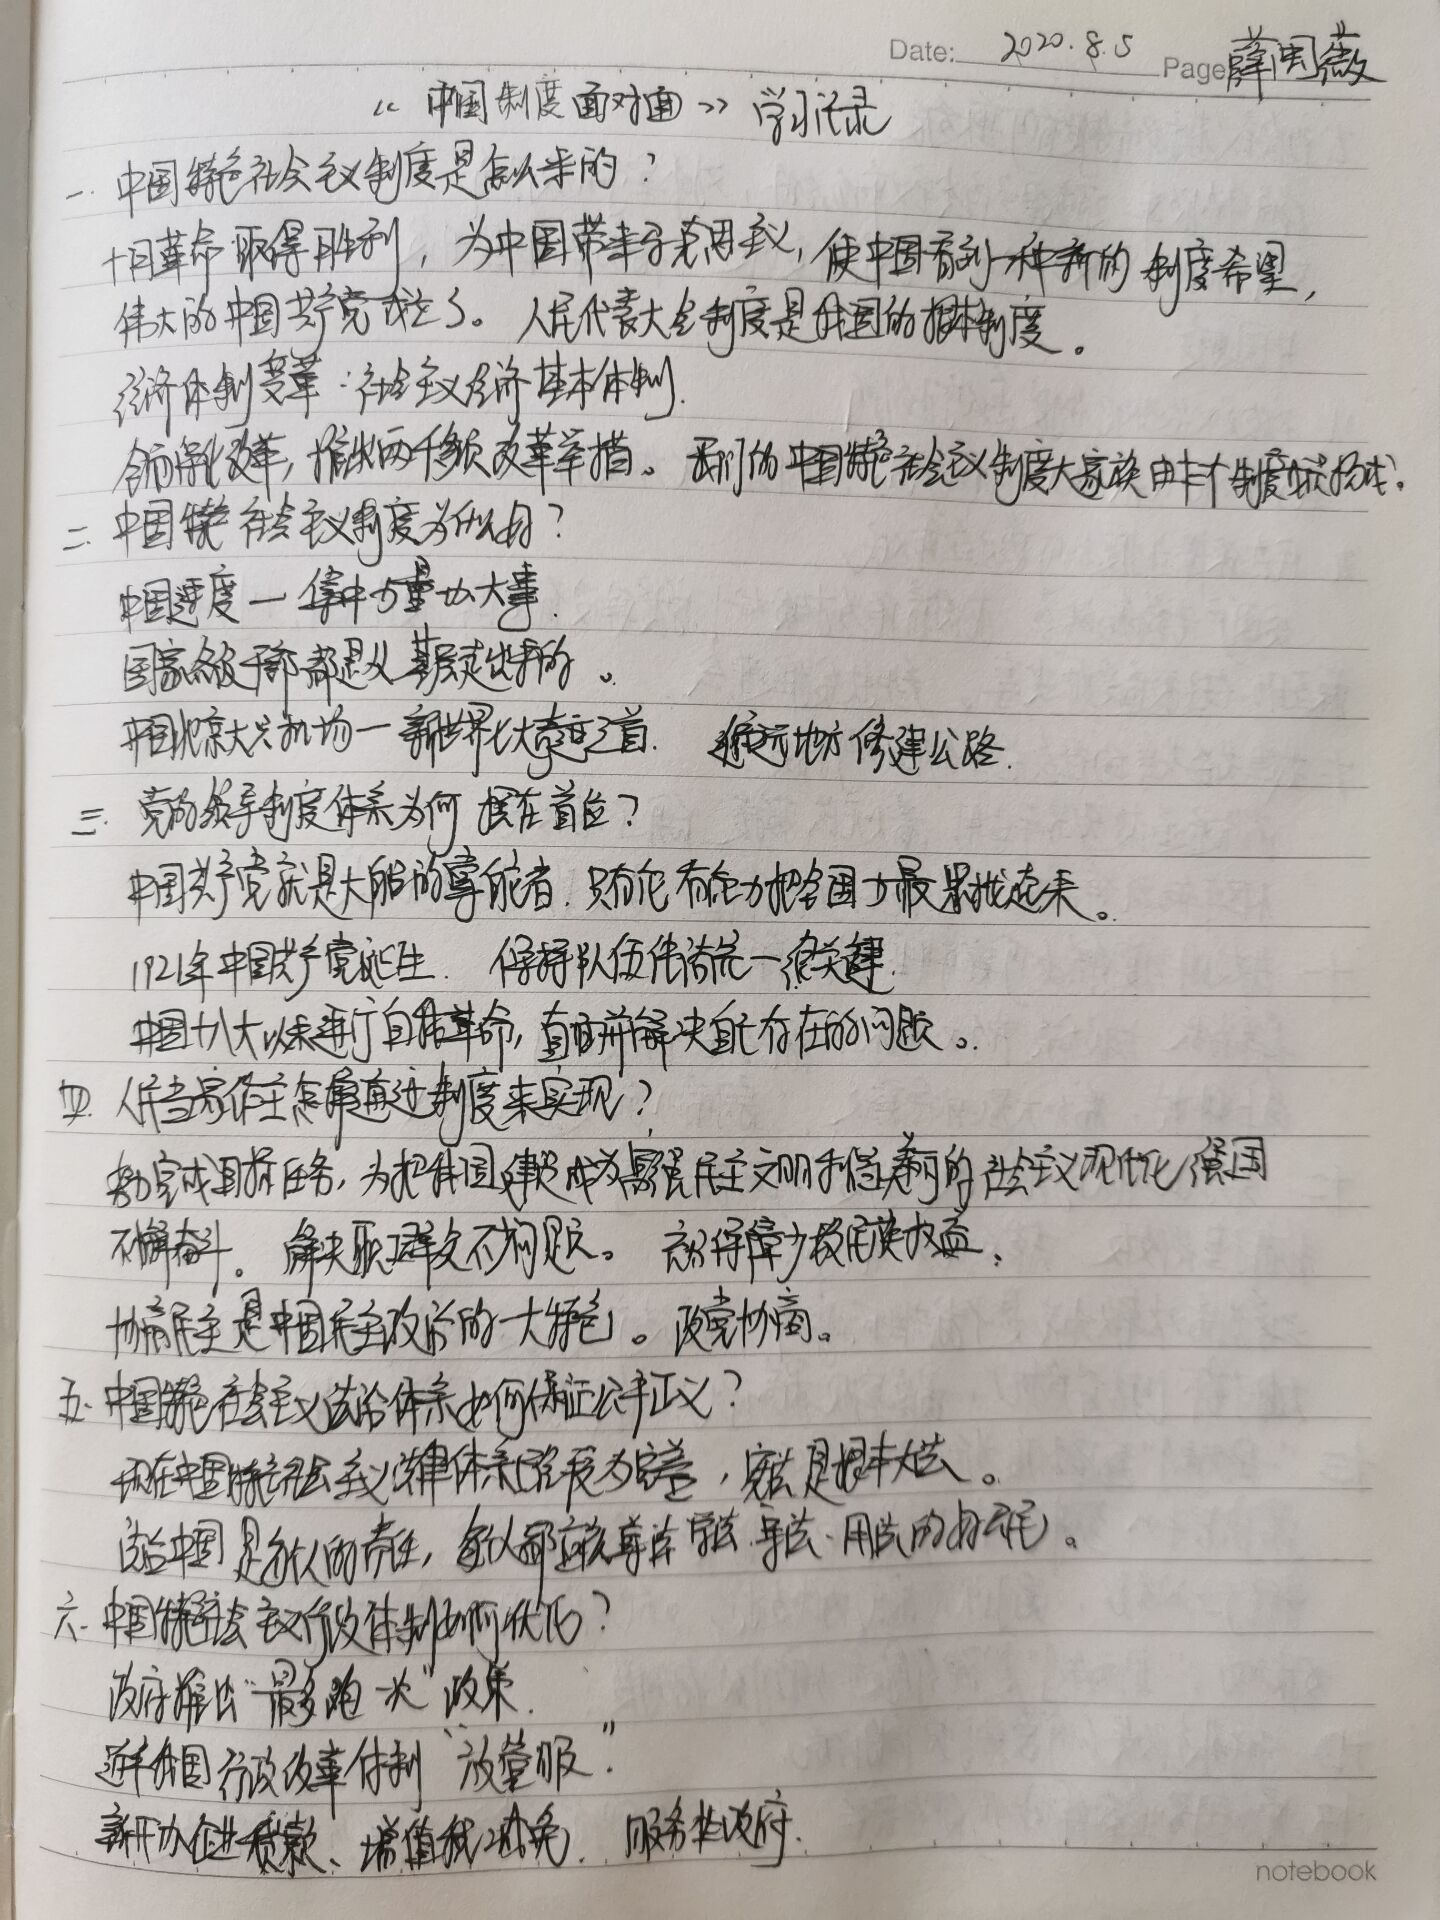 Date: 2020.8.5 Page 薛周薇
《中国制度面对面》学习记录
一. 中国特色社会主义制度是怎么来的？
十月革命取得胜利，为中国带来了马克思主义，使中国看到一种新的制度希望，
伟大的中国共产党成立了。人民代表大会制度是我国的根本制度。
经济体制变革：社会主义经济基本体制.
全面深化改革，推出两千多项改革举措。我们的中国特色社会主义制度大家族由十个制度构成。
二. 中国特色社会主义制度为什么好？
中国速度一集中力量办大事.
国家各级干部都是从基层走出来的。
中国北京大兴机场一新世界七大奇迹之首. 遥远地方修建公路.
三. 党的领导制度体系为何摆在首位？
中国共产党就是大船的掌舵者. 只有它有能力把全国力量聚拢起来。
1921年中国共产党诞生. 保持队伍纯洁统一很关键.
中国十八大以来进行自我革命，直面并解决自己存在的问题。
四. 人民当家作主怎样通过制度来实现？
努力完成目标任务，为把我国建设成为富强民主文明和谐美丽的社会主义现代化强国
不懈奋斗。解决职工群众不问题。充分保障少数民族权益.
协商民主是中国民主政治的一大特色。政党协商。
五. 中国特色社会主义法治体系如何保证公平正义？
现在中国特色社会主义法律体系已经较为完善，宪法是根本大法。
法治中国是每个人的责任，每个人都应该尊法 学法.守法.用法的好公民。
六. 中国特色社会主义行政体制如何优化？
政府推出“最多跑一次”政策.
近年我国行政改革体制“放管服”.
新开办企业贷款、增值税减免. 服务型政府.
notebook